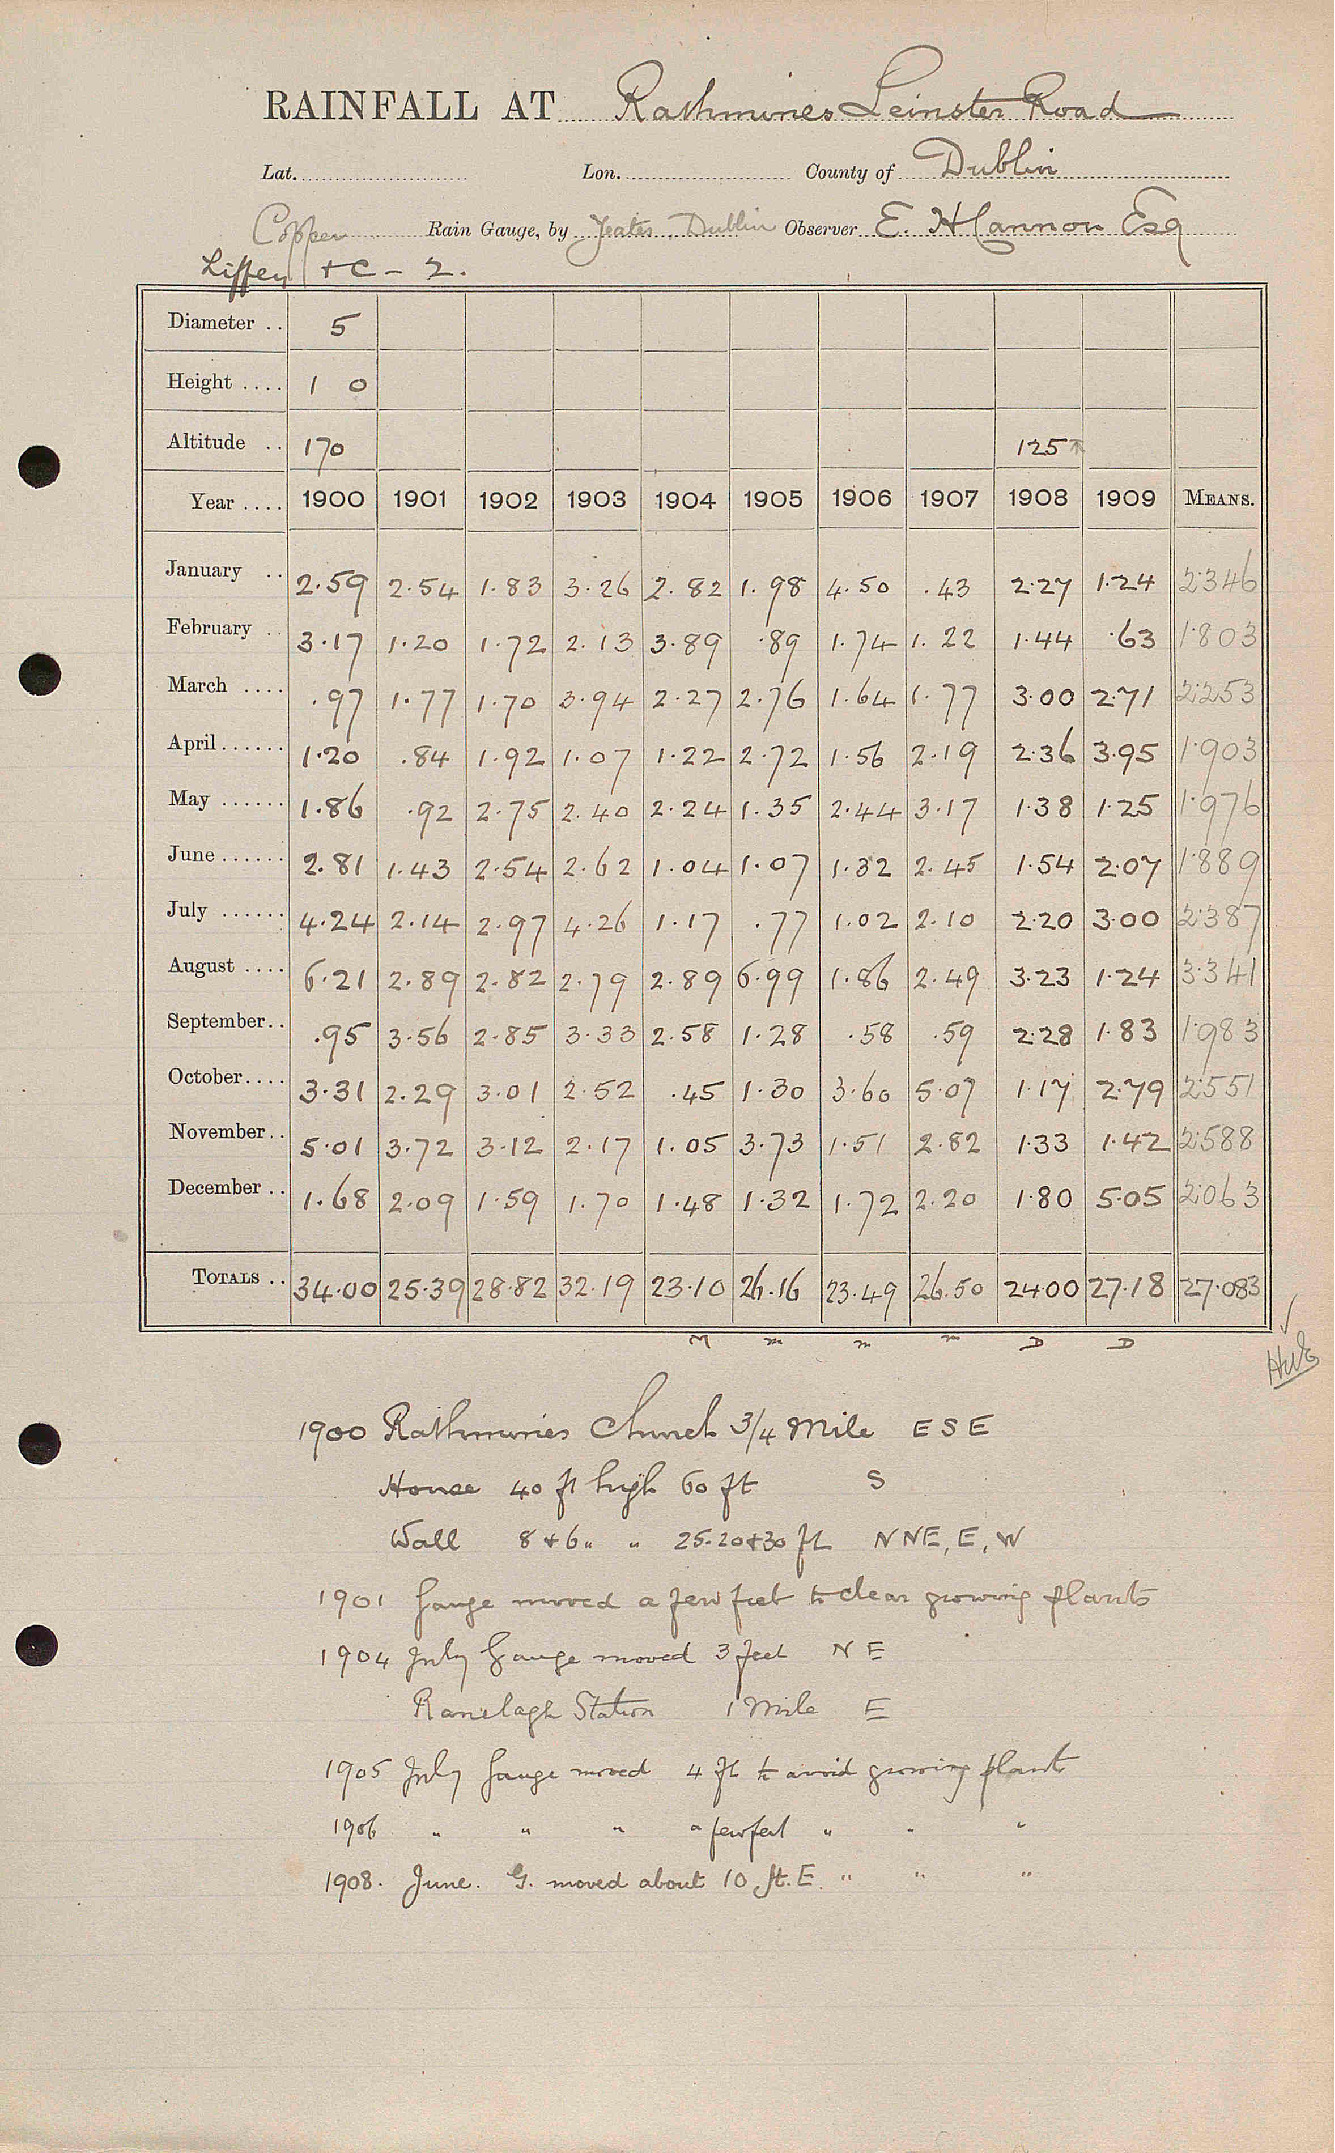 RAINFALL AT Rathmines Leinster Road
Lat. Lon. County of Dublin
Copper Rain Gauge, by Yeates, Dublin Observer E. H Cannon Esq
Liffey &c - 2.
Diameter .. 5
Height .... 1 0
Altitude .. 170 125
Year .... 1900 1901 1902 1903 1904 1905 1906 1907 1908 1909 MEANS.
January .. 2.59 2.54 1.83 3.26 2.82 1.98 4.50 .43 2.27 1.24 2.346
February .. 3.17 1.20 1.72 2.13 3.89 .89 1.74 1.22 1.44 .63 1.803
March .... .97 1.77 1.70 3.94 2.27 2.76 1.64 1.77 3.00 2.71 2.253
April ...... 1.20 .84 1.92 1.07 1.22 2.72 1.56 2.19 2.36 3.95 1.903
May ...... 1.86 .92 2.75 2.40 2.24 1.35 2.44 3.17 1.38 1.25 1.976
June ...... 2.81 1.43 2.54 2.62 1.04 1.07 1.32 2.45 1.54 2.07 1.889
July ...... 4.24 2.14 2.97 4.26 1.17 .77 1.02 2.10 2.20 3.00 2.387
August .... 6.21 2.89 2.82 2.79 2.89 6.99 1.86 2.49 3.23 1.24 3.341
September .. .95 3.56 2.85 3.33 2.58 1.28 .58 .59 2.28 1.83 1.983
October .... 3.31 2.29 3.01 2.52 .45 1.30 3.60 5.07 1.17 2.79 2.551
November .. 5.01 3.72 3.12 2.17 1.05 3.73 1.51 2.82 1.33 1.42 2.588
December .. 1.68 2.09 1.59 1.70 1.48 1.32 1.72 2.20 1.80 5.05 2.063
TOTALS .. 34.00 25.39 28.82 32.19 23.10 26.16 23.49 26.50 24.00 27.18 27.083
M m m m D D
1900 Rathmines Church 3/4 Mile ESE
House 40 ft high 60 ft S
Wall 8 & 6 " " 25.20 & 30 ft NNE, E, W
1901 Gauge moved a few feet to clear growing plants
1904 July Gauge moved 3 feet NE
Ranelagh Station 1 Mile E
1905 July Gauge moved 4 ft to avoid growing plants
1906 " " " a few feet " " "
1908. June. G. moved about 10 ft. E. " " "